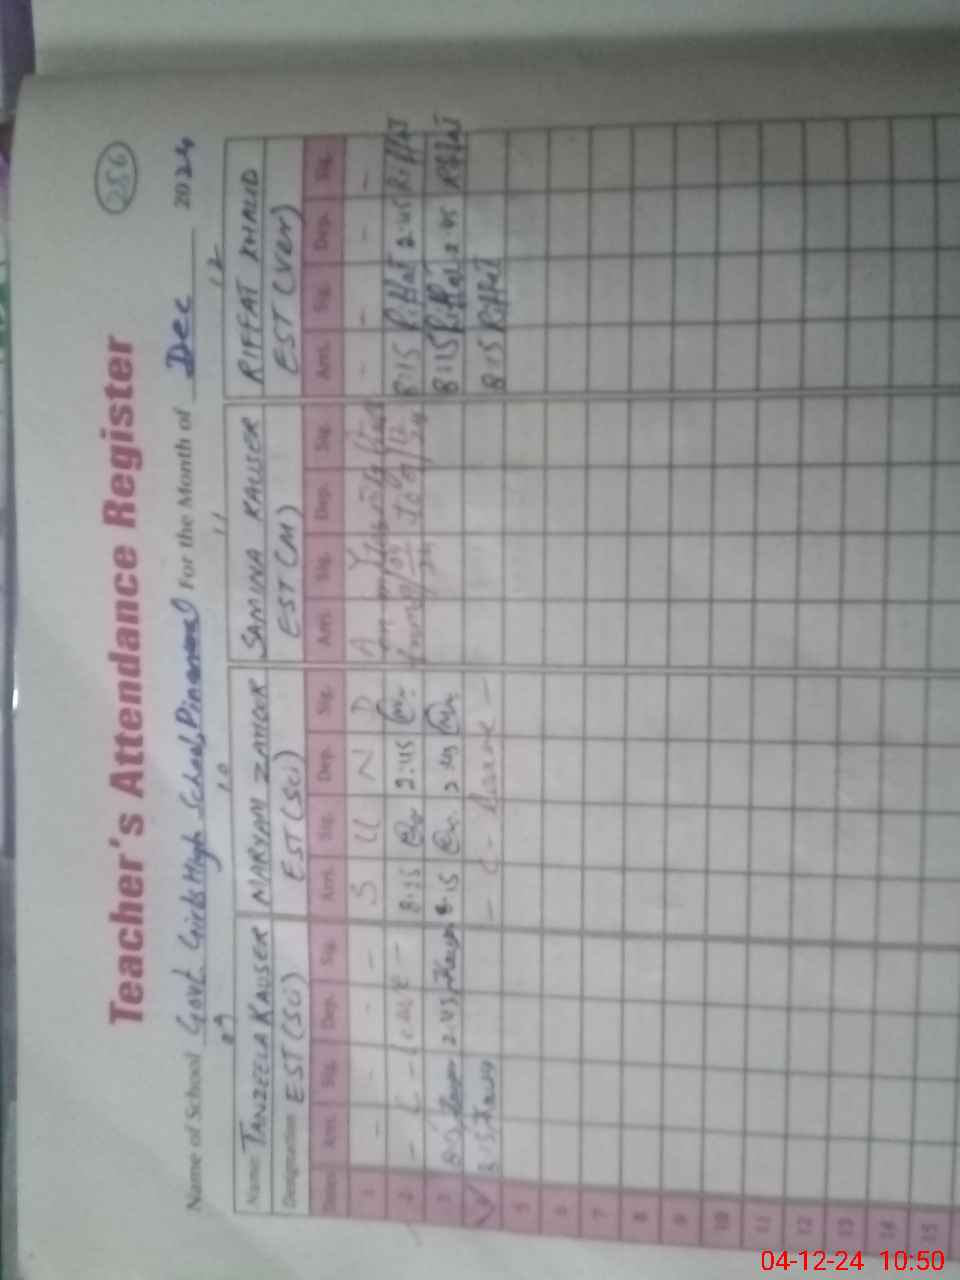 256
Teacher's Attendance Register
Name of School Govt. Girls High School, Pinanwal For the Month of Dec 2024
09 10 11 12
Name: TANZEELA KAUSER MARYAM ZAHOOR SAMINA KAUSER RIFFAT KHALID
Designation EST (SCI) EST (SCI) EST (M) EST (Ver)
Dates Arri. Sig. Dep. Sig. Arri. Sig. Dep. Sig. Arri. Sig. Dep. Sig. Arri. Sig. Dep. Sig.
1 - - - - S U N D A Y - - - -
2 - C - Leave - 8:15 2:45 8:15 Riffat 2:45 Riffat
3 8:15 2:45 8:15 2:45 8:15 Riffat 2:45 Riffat
8:15 - C - Leave - 8:15 Riffat
5
6
7
8
9
10
11
12
13
14
15
04-12-24 10:50